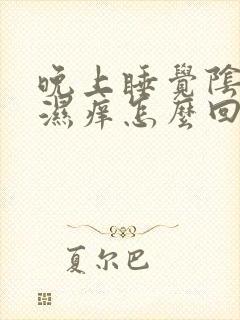 晚上睡覺陰
濕痒怎麼回
夏尔巴